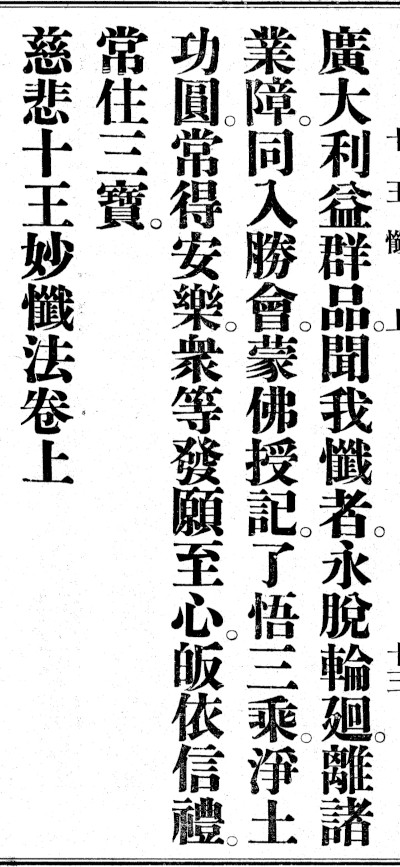 十王懺　上　十三
廣大利益群品。聞我懺者。永脫輪廻。離諸
業障。同入勝會。蒙佛授記。了悟三乘。淨土
功圓。常得安樂。衆等發願至心。皈依信禮。
常住三寶。
慈悲十王妙懺法卷上